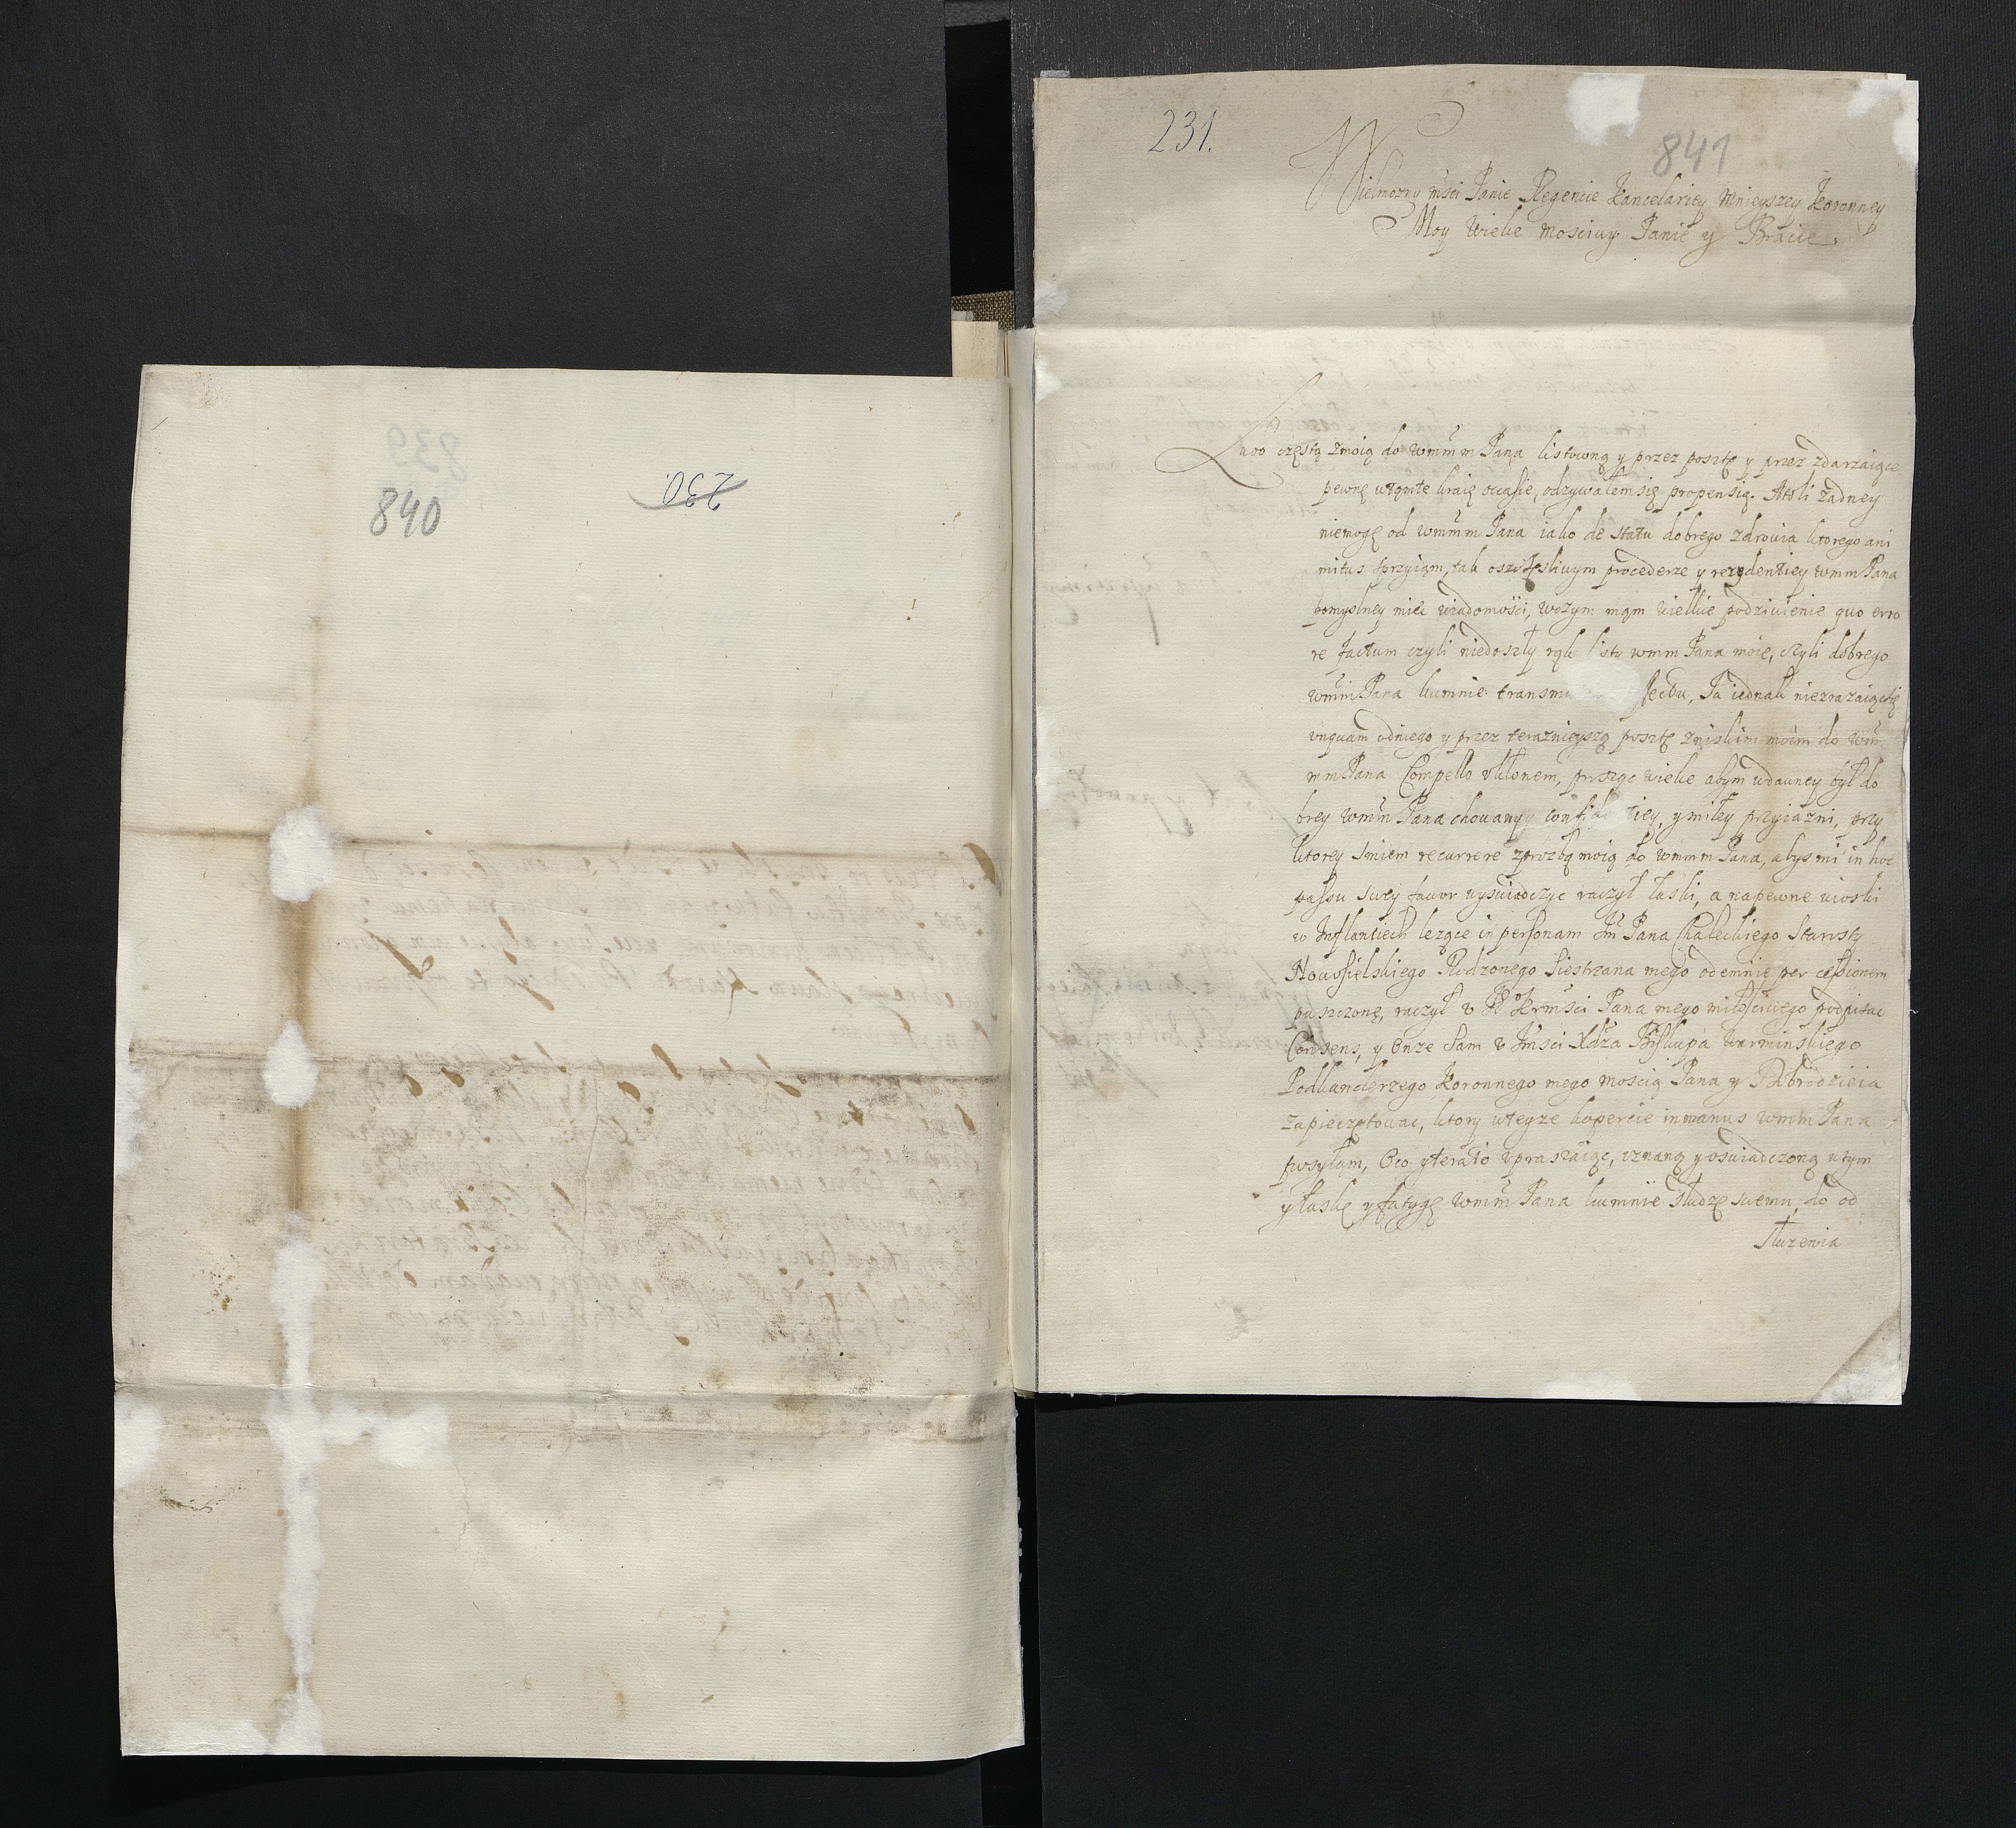 840
230.
231.
841
Wielmozny mści Panie Regencie Kancelariey Mnieyszey Koronney
Moy Wielce Mosciwy Panie y Bracie.
Lubo częstą zmoią do wmm m Pana listowną y przez posztę y przez zdarzaiące
pewnę wtąmte kraię occasie, odzywałem się propensią. Atoli zadney
niemogę od wmm m Pana iako de statu dobrego zdrowia ktorego ani
mitus sprzyiąm, tak oszczęsliwym procederze y rezydentiey wmm Pana
pomyslney miec wiadomości, wczym mąm wielkie podziwienie quo erro
re factum czyli niedoszły rąk listy wmm Pana moię, czyli dobrego
wmm Pana kumnie transmu fectu, Ja iednak niezrazaiącsię
unquam odniego y przez teraznieyszą posztę zniskim moim do wm
mm Pana Compello ukłonem, prosząc wielce abym wdawney był do
brey wmm Pana chowany confide tiey, y miłey przyiazni, przy
ktorey smiem recurrere zprozbą moią do wmm m Pana, abys mi in hoc
passu swey favor wyswiadczyc raczył łaski, a napewne wioski
w Inflantiech lezące in personam Jm Pana Chaleckiego Starosty
Nowosielskiego Rodzonego Siestrzana mego odemnię per cessionem
puszczonę, raczył u K Jeo mści Pana mego miłosciwego podpisac
Consens, y Onze sam u Jmsci Xdza Biskupa Warminskiego
Podkanclerzego Koronnego mego moscią Pana y Dobrodzieia
zapieczętowac, ktory wteyze kopercie in manus wmm Pana
posyłam, Oco yterato upraszaiąc, uznaną y oswiadczoną wtym
y łaskę y fatygę wmm Pana kumnie słudze swemu, do od
służenia